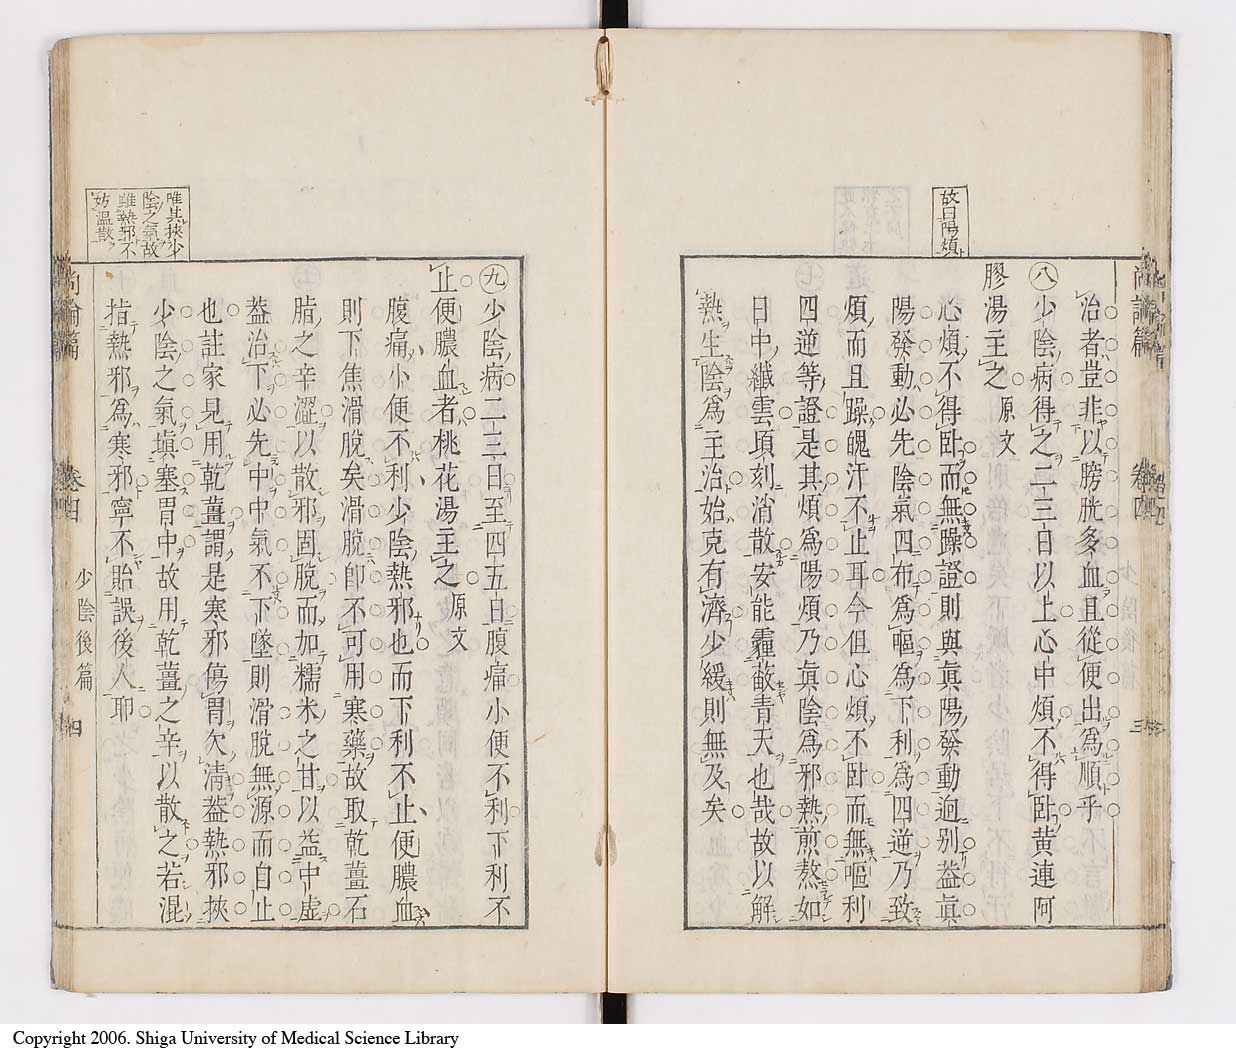 故曰陽煩
尚論篇 卷四 三
治者豈非以膀胱多血且從便出爲順乎
八 少陰病得之二三日以上心中煩不得臥黃連阿
膠湯主之 原文
心煩不得臥而無躁證則與眞陽發動迥别葢眞
陽發動必先陰氣四布爲嘔爲下利爲四逆乃致
煩而且躁魄汗不止耳今但心煩不臥而無嘔利
四逆等證是其煩爲陽煩乃眞陰爲邪熱煎熬如
日中纖雲頃刻消散安能霾蔽青天也哉故以解
熱生陰爲主治始克有濟少緩則無及矣
唯其挾少
陰之氣故
雖熱邪不
妨溫散
九 少陰病二三日至四五日腹痛小便不利下利不
止便膿血者桃花湯主之 原文
腹痛小便不利少陰熱邪也而下利不止便膿血
則下焦滑脫矣滑脫卽不可用寒藥故取乾薑石
脂之辛澀以散邪固脫而加糯米之甘以益中虛
葢治下必先中中氣不下墜則滑脫無源而自止
也註家見用乾薑謂是寒邪傷胃欠淸葢熱邪挾
少陰之氣塡塞胃中故用乾薑之辛以散之若混
指熱邪爲寒邪寧不貽誤後人耶
尚論篇 卷四 少陰後篇 四
Copyright 2006. Shiga University of Medical Science Library